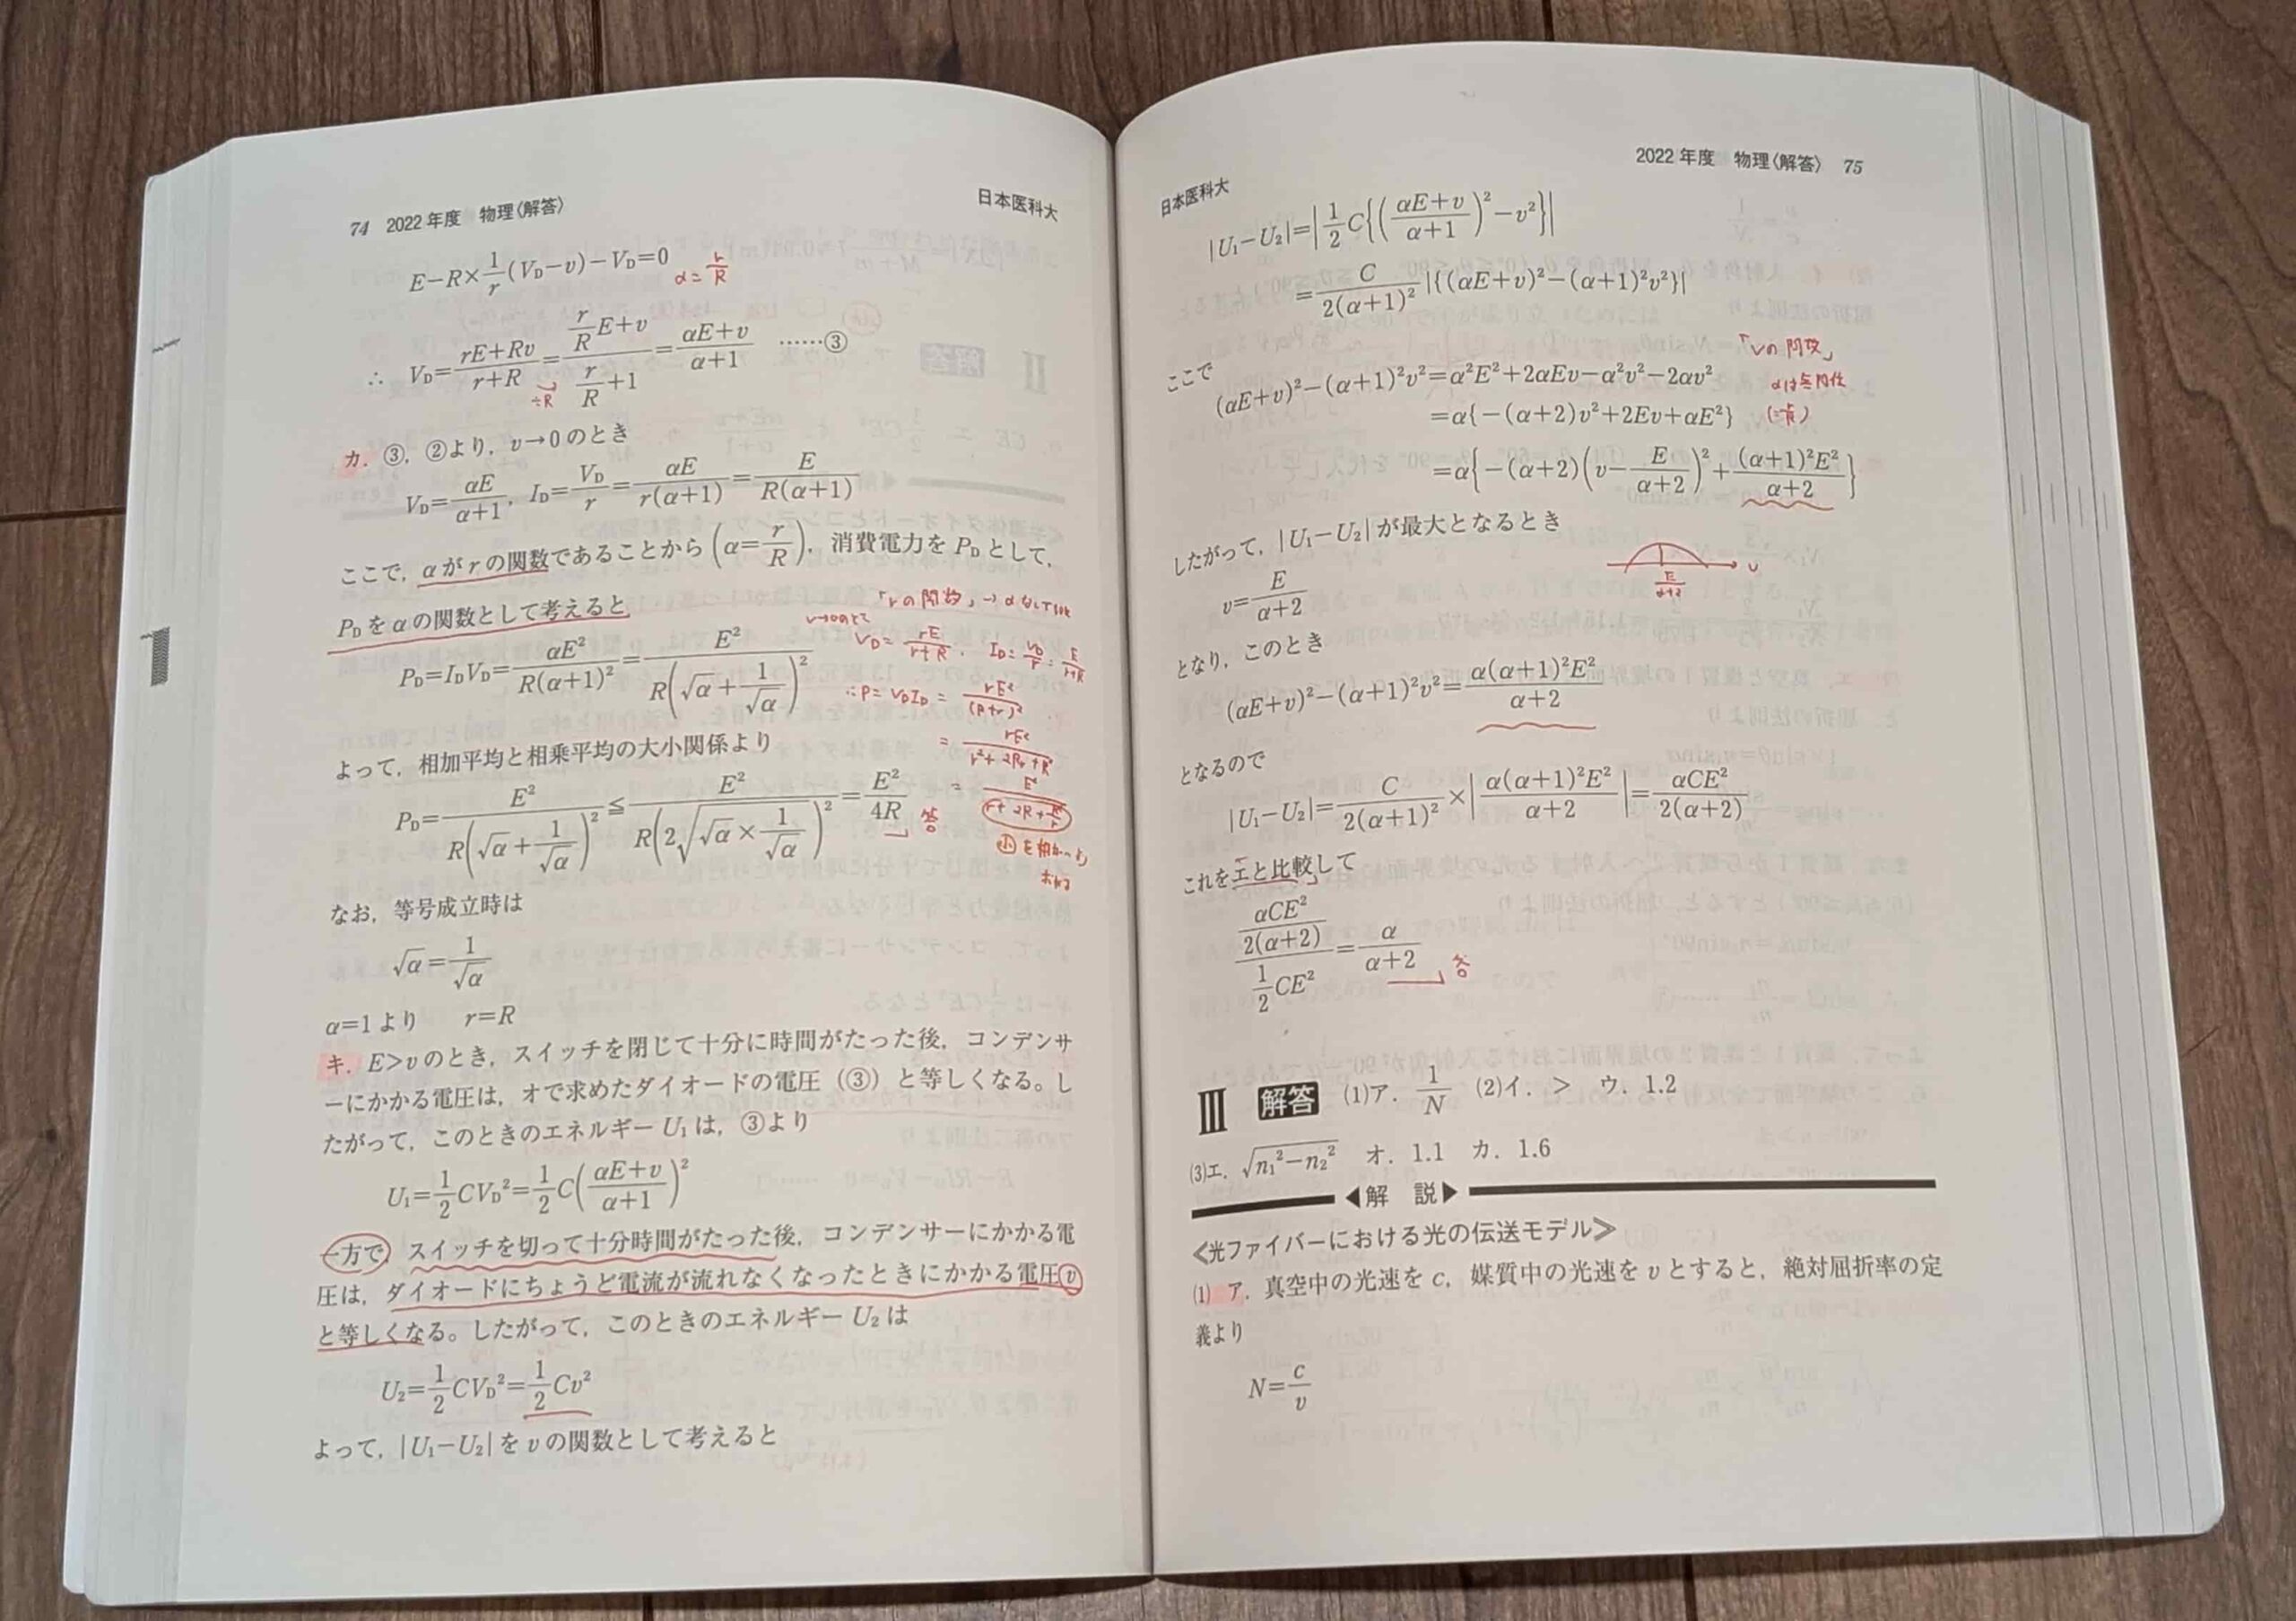 74 2022年度 物理〈解答〉 日本医科大
E−R×1/r(V_D−v)−V_D=0 α=r/R
∴ V_D=(rE+Rv)/(r+R)=(r/R E+v)/(r/R+1)=(αE+v)/(α+1) ……③
÷R
カ．③，②より，v→0のとき
V_D=αE/(α+1)，I_D=V_D/r=αE/(r(α+1))=E/(R(α+1))
ここで，αがrの関数であることから(α=r/R)，消費電力をP_Dとして，
P_Dをαの関数として考えると
「rの関数」→
v→0のとき
V_D=rE/(r+R), I_D=V_D/r=E/(r+R)
P_D=I_DV_D=αE²/(R(α+1)²)=E²/(R(√α+1/√α)²)
∴P=V_DI_D=rE²/(R+r)²
=rE²/(r²+2Rr+R²)
よって，相加平均と相乗平均の大小関係より
P_D=E²/(R(√α+1/√α)²)≦E²/(R(2√(√α×1/√α))²)=E²/4R 答
=E²/(r+2R+R²/r)
なお，等号成立時は
√α=1/√α
α=1より r=R
キ．E>vのとき，スイッチを閉じて十分に時間がたった後，コンデンサ
ーにかかる電圧は，オで求めたダイオードの電圧（③）と等しくなる。し
たがって，このときのエネルギーU₁は，③より
U₁=1/2 CV_D²=1/2 C((αE+v)/(α+1))²
一方で，スイッチを切って十分時間がたった後，コンデンサーにかかる電
圧は，ダイオードにちょうど電流が流れなくなったときにかかる電圧v
と等しくなる。したがって，このときのエネルギーU₂は
U₂=1/2 CV_D²=1/2 Cv²
よって，|U₁−U₂|をvの関数として考えると
日本医科大 2022年度 物理〈解答〉 75
|U₁−U₂|=|1/2 C{((αE+v)/(α+1))²−v²}|
=C/(2(α+1)²)|{(αE+v)²−(α+1)²v²}|
「vの関数」
ここで
(αE+v)²−(α+1)²v²=α²E²+2αEv−α²v²−2αv²
αは無関係
=α{−(α+2)v²+2Ev+αE²}
=α{−(α+2)(v−E/(α+2))²+(α+1)²E²/(α+2)}
したがって，|U₁−U₂|が最大となるとき
v
E/(α+2)
v=E/(α+2)
となり，このとき
(αE+v)²−(α+1)²v²=α(α+1)²E²/(α+2)
となるので
|U₁−U₂|=C/(2(α+1)²)×|α(α+1)²E²/(α+2)|=αCE²/(2(α+2))
これをエと比較して
(αCE²/(2(α+2)))/(1/2 CE²)=α/(α+2) 答
Ⅲ 解答 (1)ア．1/N (2)イ．> ウ．1.2
(3)エ．√(n₁²−n₂²) オ．1.1 カ．1.6
◀解 説▶
≪光ファイバーにおける光の伝送モデル≫
(1) ア．真空中の光速をc，媒質中の光速をvとすると，絶対屈折率の定
義より
N=c/v